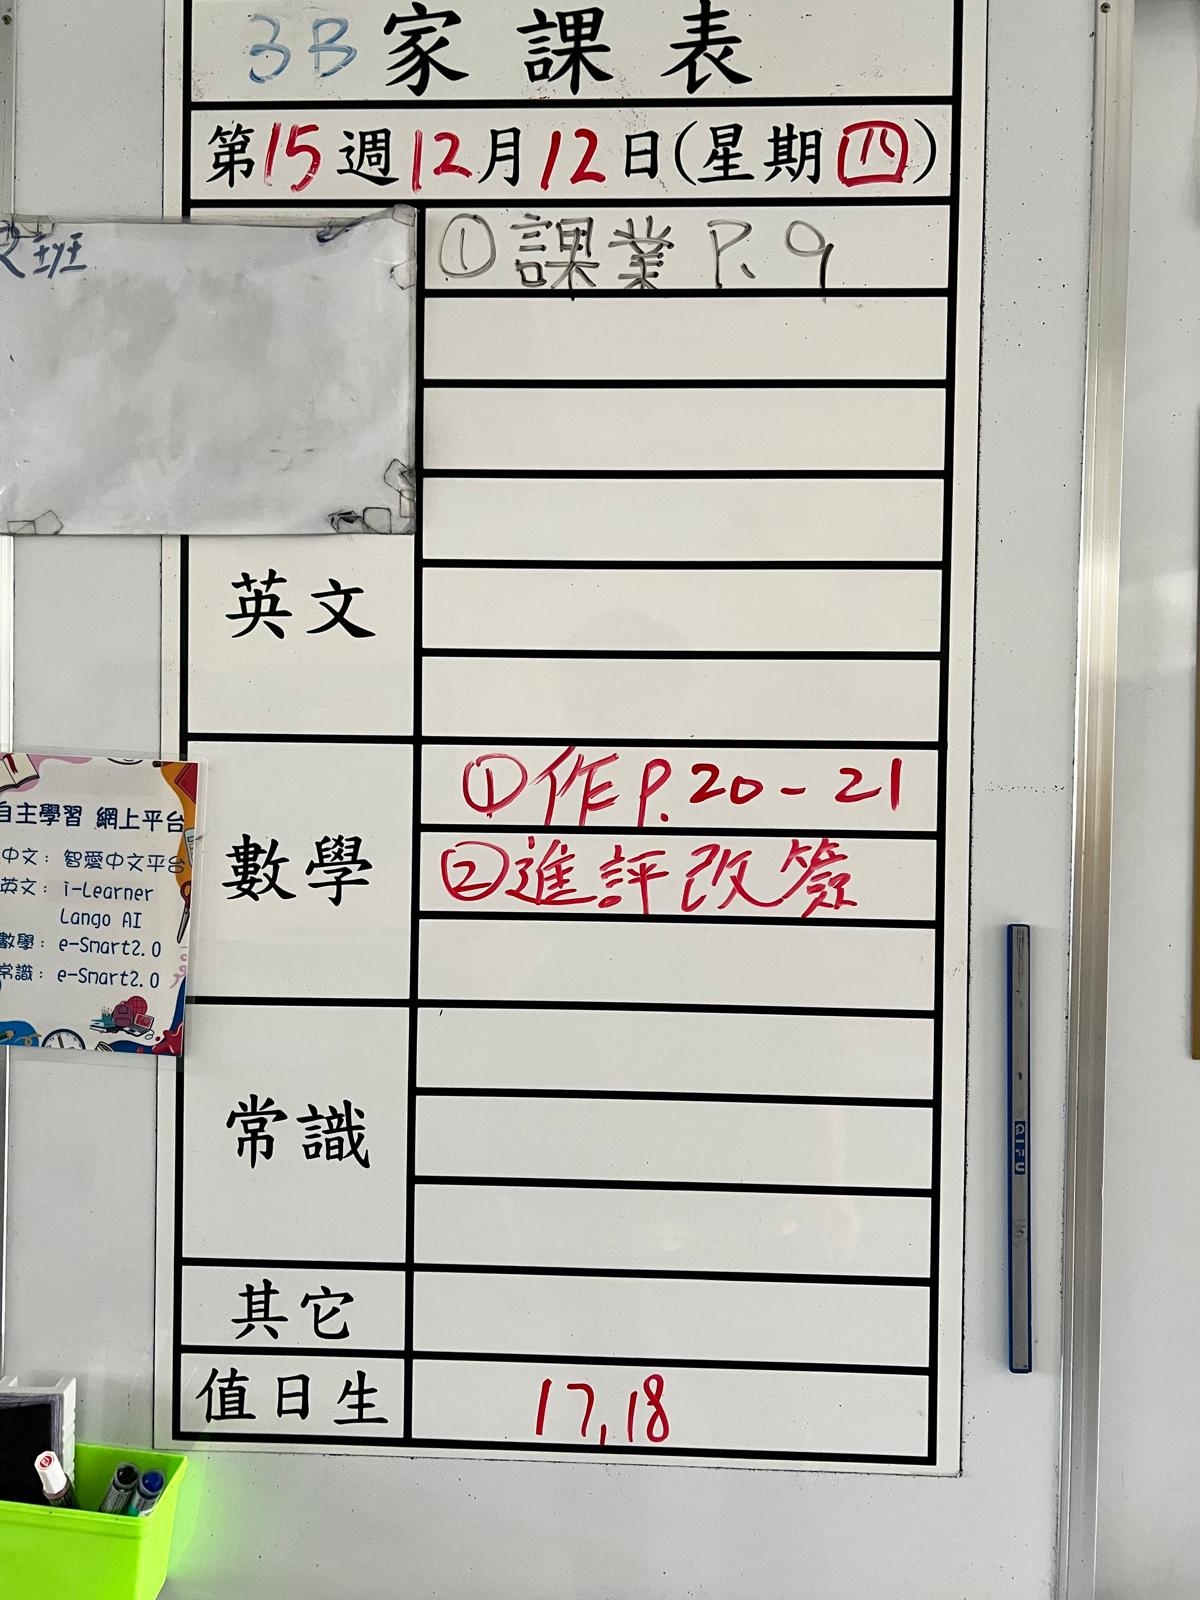 3B 家課表
第15週12月12日(星期四)
文班
①課業 P.9
英文
數學
①作P.20-21
②進評改簽
自主學習 網上平台
中文：智愛中文平台
英文：i-Learner
Lango AI
數學：e-Smart2.0
常識：e-Smart2.0
常識
其它
值日生
17,18
QIFU